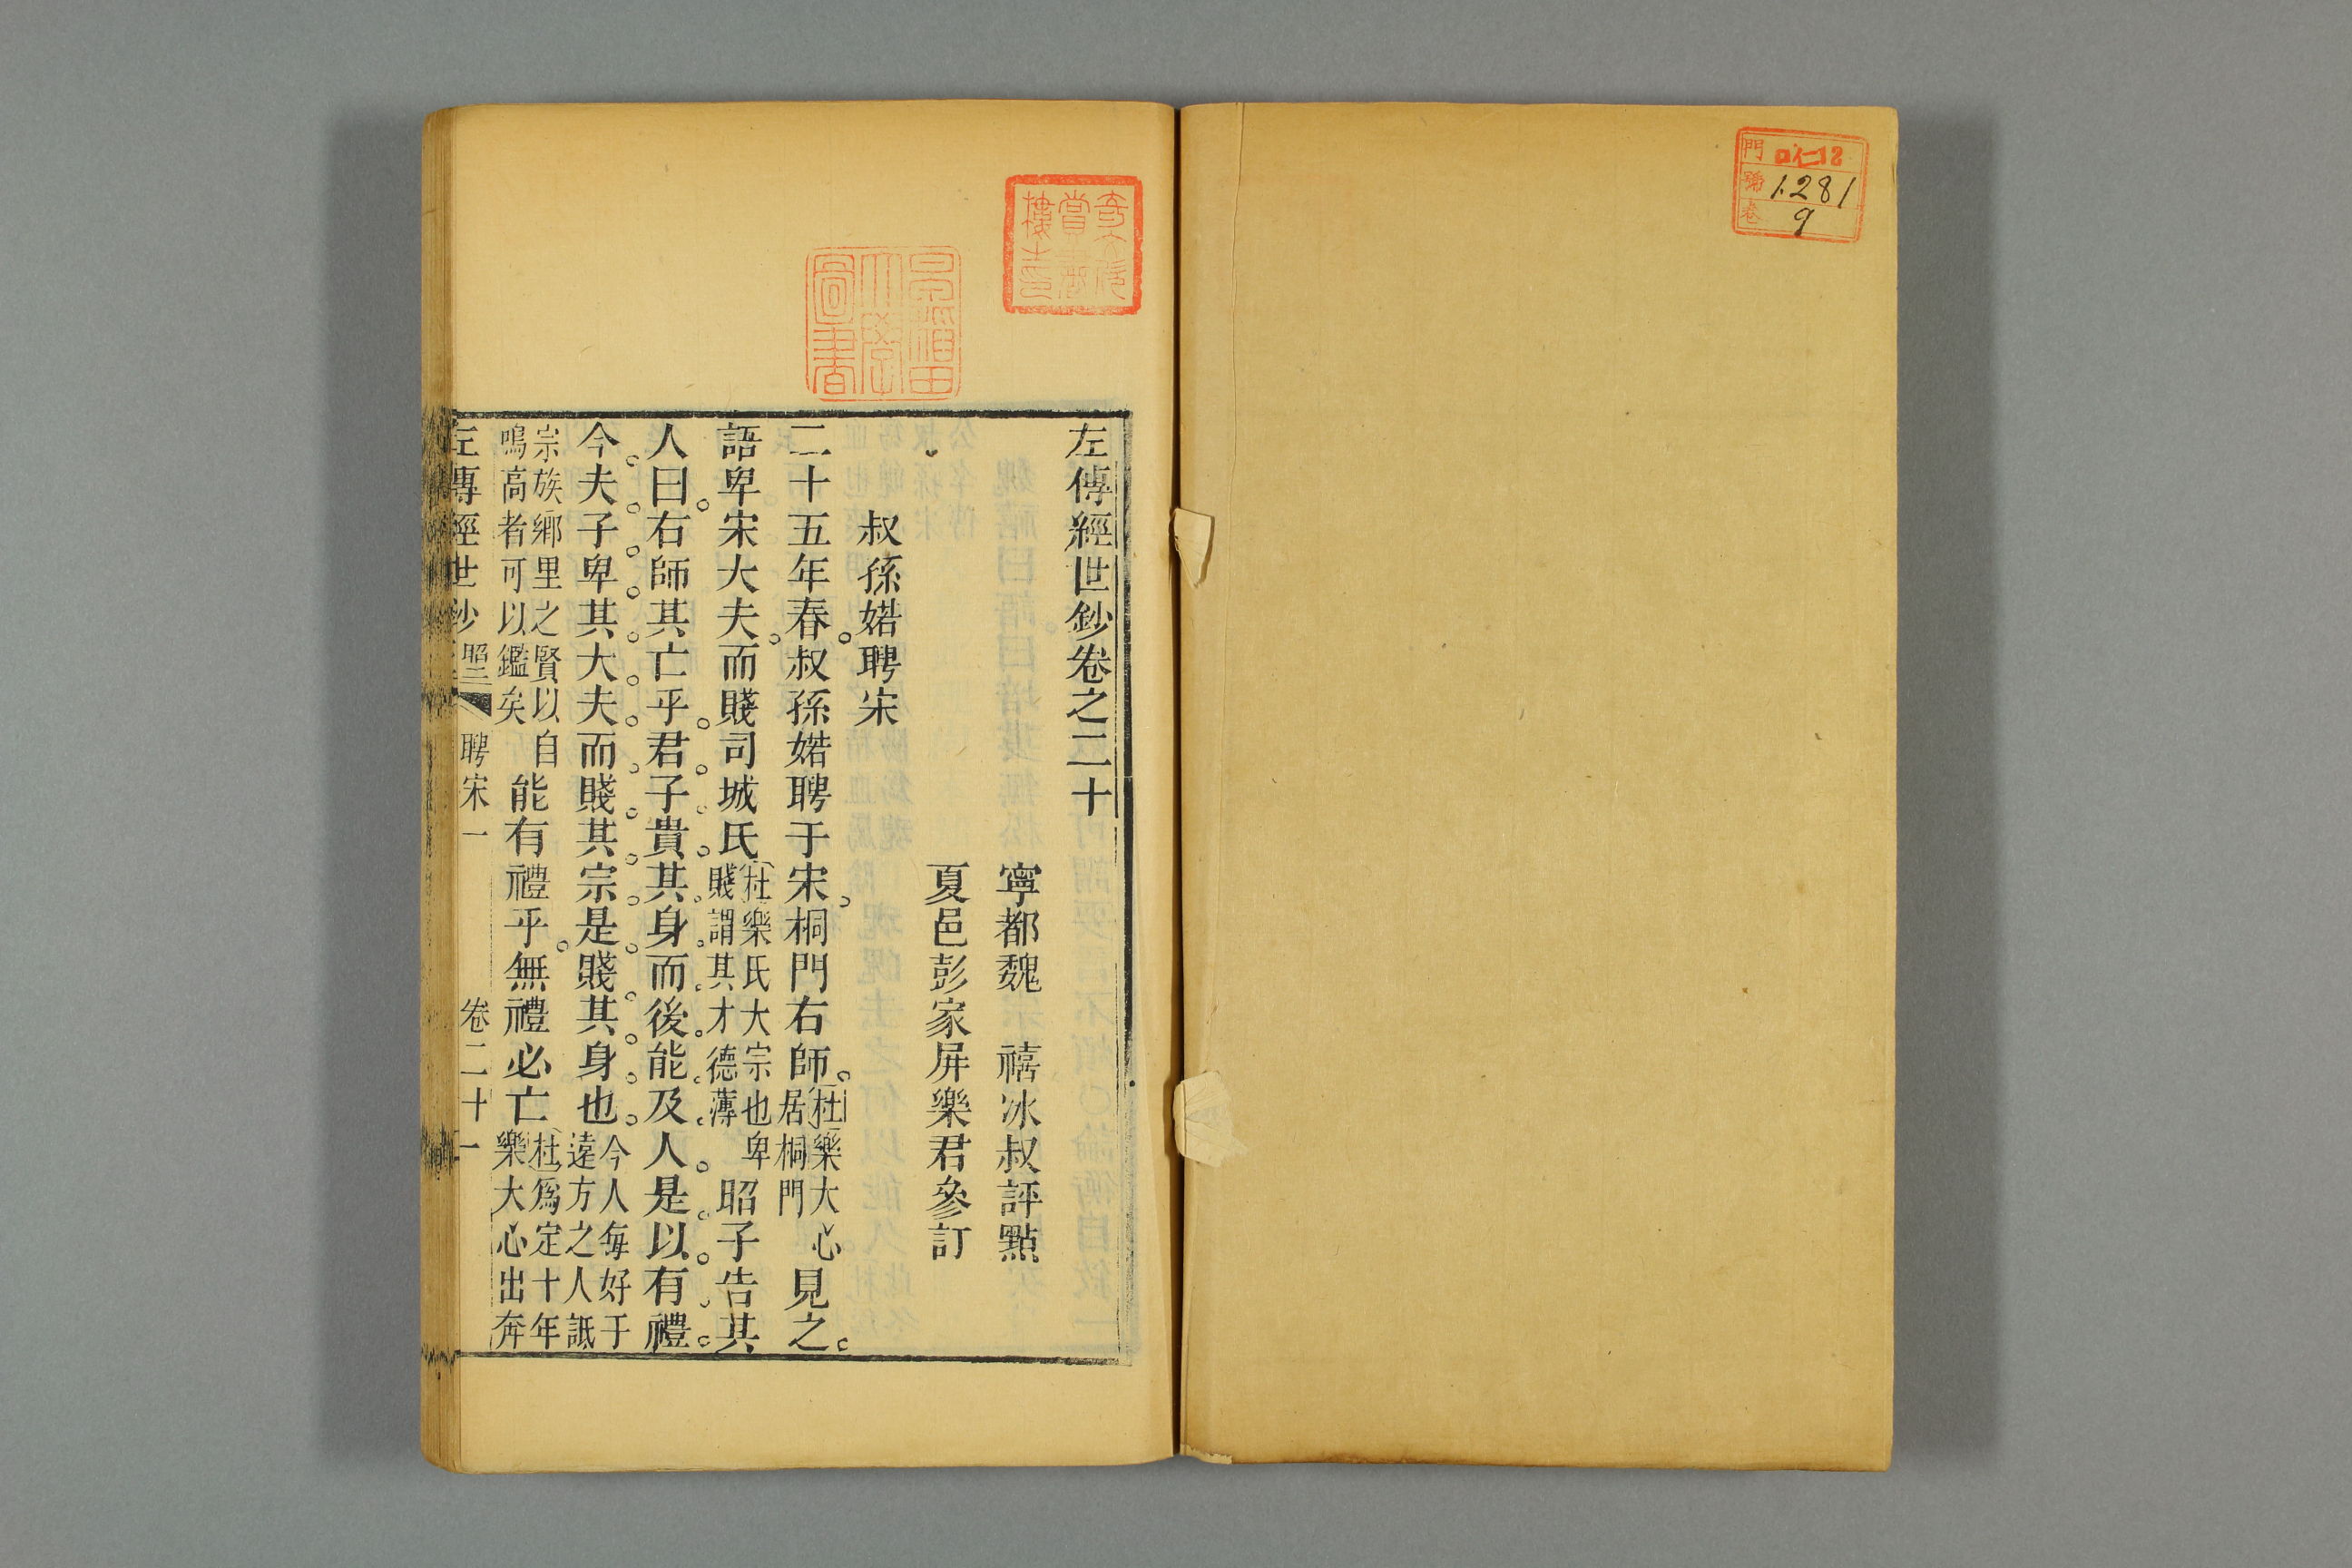 門 ロ仁12
號 1281
卷 9
早稲田大學圖書
左傳經世鈔卷之二十
寧都魏 禧冰叔評點
夏邑彭家屏樂君參訂
叔孫婼聘宋
二十五年春。叔孫婼聘于宋。桐門右師。杜樂大心居桐門見之。
語卑宋大夫。而賤司城氏杜樂氏大宗也卑賤謂其才德薄昭子告其
人曰。右師其亡乎。君子貴其身而後能及人。是以有禮。
今夫子卑其大夫而賤其宗。是賤其身也。今人每好于遠方之人詆
宗族鄉里之賢以自鳴高者可以鑑矣能有禮乎。無禮必亡杜爲定十年樂大心出奔
左傳經世鈔 昭二 聘宋一 卷二十 一